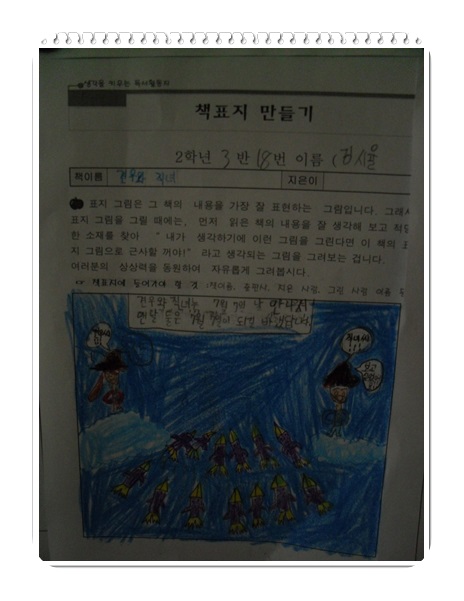 생각을 키우는 독서활동지
책표지 만들기
2학년 3반 18번 이름 (김시율
책이름 견우와 직녀 지은이
표지 그림은 그 책의 내용을 가장 잘 표현하는 그림입니다. 그래서
표지 그림을 그릴 때에는, 먼저 읽은 책의 내용을 잘 생각해 보고 적당
한 소재를 찾아 "내가 생각하기에 이런 그림을 그린다면 이 책의 표
지 그림으로 근사할 꺼야!" 라고 생각되는 그림을 그려보는 겁니다.
여러분의 상상력을 동원하여 자유롭게 그려봅시다.
책표지에 들어가야 할 것 (책이름, 출판사, 지은 사람, 그린 사람 이름 등
견우와 직녀는 7월 7일 날 만나서
7월 7일이 되면